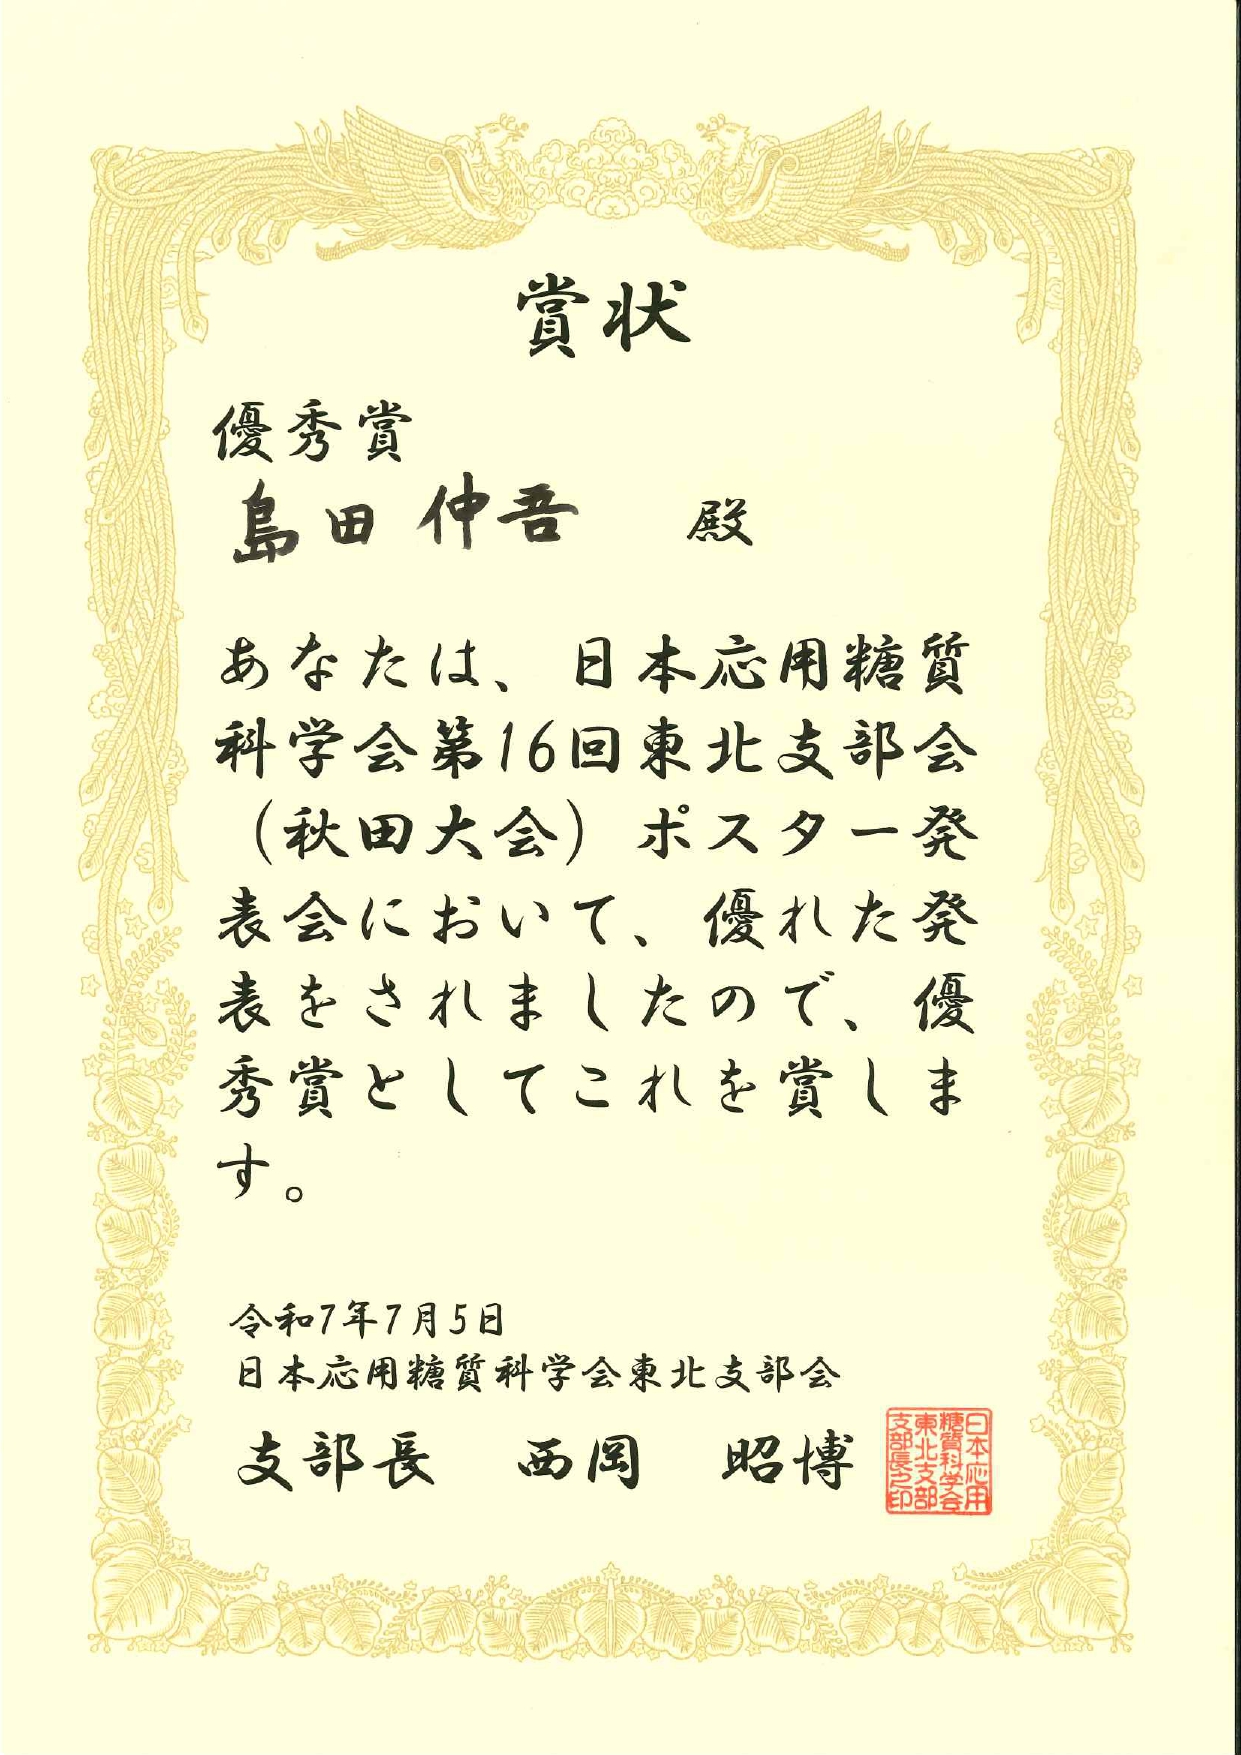 賞状
優秀賞
島田 伸吾 殿
あなたは、日本応用糖質
科学会第16回東北支部会
（秋田大会）ポスター発
表会において、優れた発
表をされましたので、優
秀賞としてこれを賞しま
す。
令和7年7月5日
日本応用糖質科学会東北支部会
支部長 西岡 昭博
日本応用
糖質科学会
東北支部
支部長之印